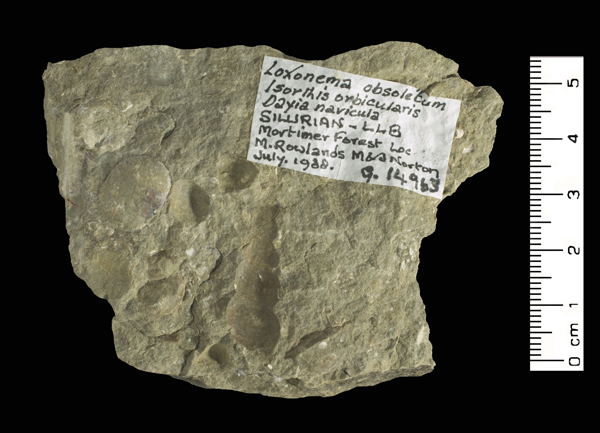 Loxonema obsoletum
Isorthis orbicularis
Dayia navicula
SILURIAN - LLB
Mortimer Forest Loc.
M. Rowlands M&A Norton
July. 1988.
G. 14963
5
4
3
2
1
0 cm